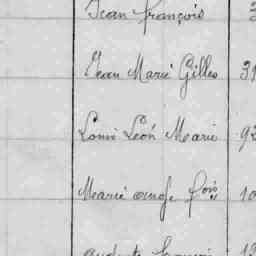 Jean François 3
Jean Marie Gilles 39
Louis Léon Marie 92
Marie ange fois 10